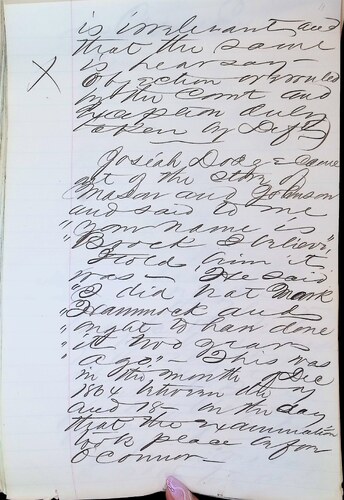 is irrelevant and
that the same
is hearsay -
X
objection overruled
by the Court and
exception duly
taken by Deft)
Josiah Dodge came
out of the store of
Mason and Johnson
and said to me
"your name is
"Brock I believe"
I told him it
was - He said
"I did hat
"Hammock and
"ought to have done
"it two years
"ago" - This was
in the month of Dec
186 between the 15
and 18 - on the day
that the examination
took place before
O'Connor